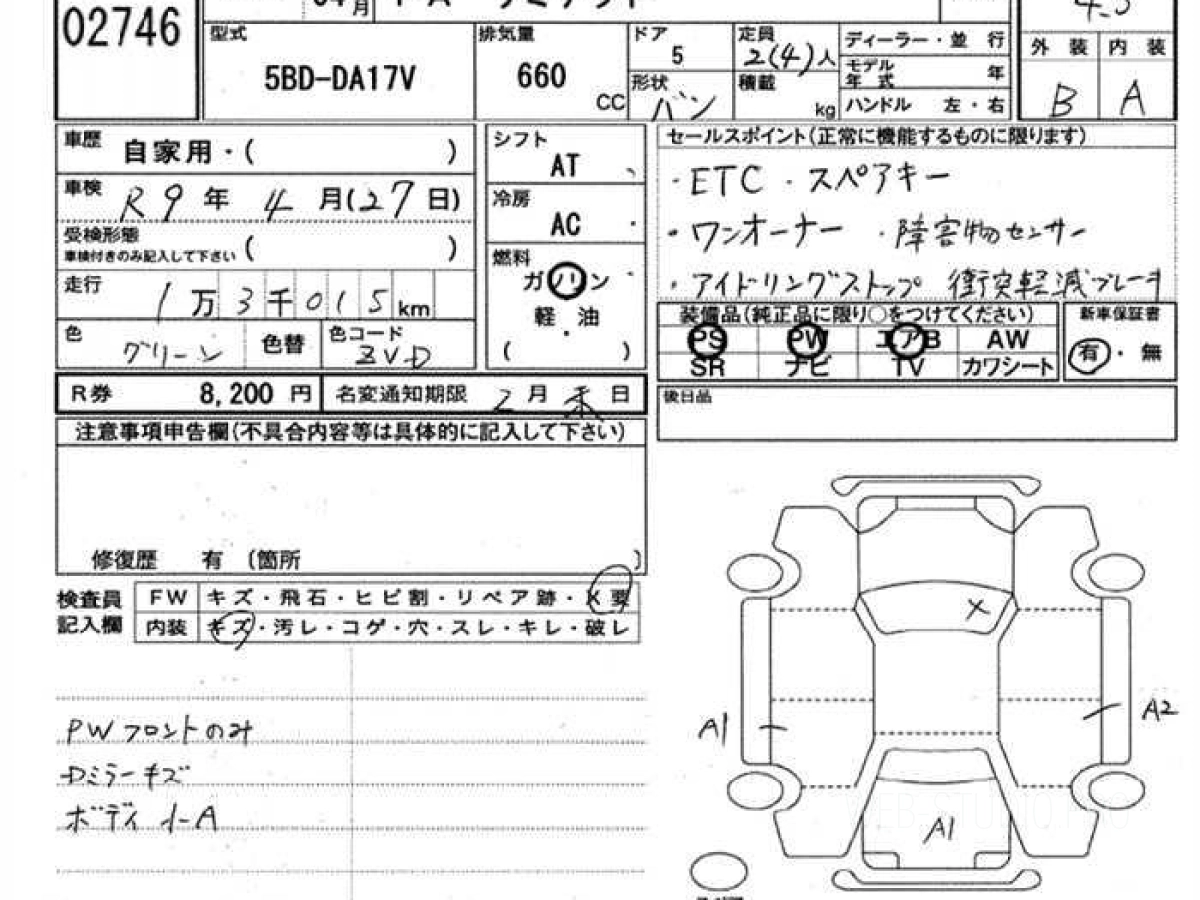 02746
型式
5BD-DA17V
排気量
660
CC
ドア
5
形状
バン
定員
2(4)人
積載
kg
ディーラー・並 行
モデル年式 年
ハンドル 左・右
4.5
外 装 内 装
B A
車歴
自家用・( )
車検
R9年 4月(27日)
受検形態
車検付きのみ記入して下さい ( )
走行
1万3千015km
色
グリーン
色替
色コード
ZVD
シフト
AT
冷房
AC
燃料
ガソリン
軽・油
( )
セールスポイント(正常に機能するものに限ります)
・ETC ・スペアキー
・ワンオーナー ・障害物センサー
・アイドリングストップ 衝突軽減ブレーキ
装備品(純正品に限り○をつけてください)
PS PW エアB AW
SR ナビ TV カワシート
新車保証書
有・無
R券 8,200 円
名変通知期限 2月末日
後日品
注意事項申告欄(不具合内容等は具体的に記入して下さい)
修復歴 有 〔箇所 〕
検査員
記入欄
FW キズ・飛石・ヒビ割・リペア跡・X要
内装 キズ・汚レ・コゲ・穴・スレ・キレ・破レ
PWフロントのみ
Dミラーキズ
ボディ小A
X
A1
A2
A1